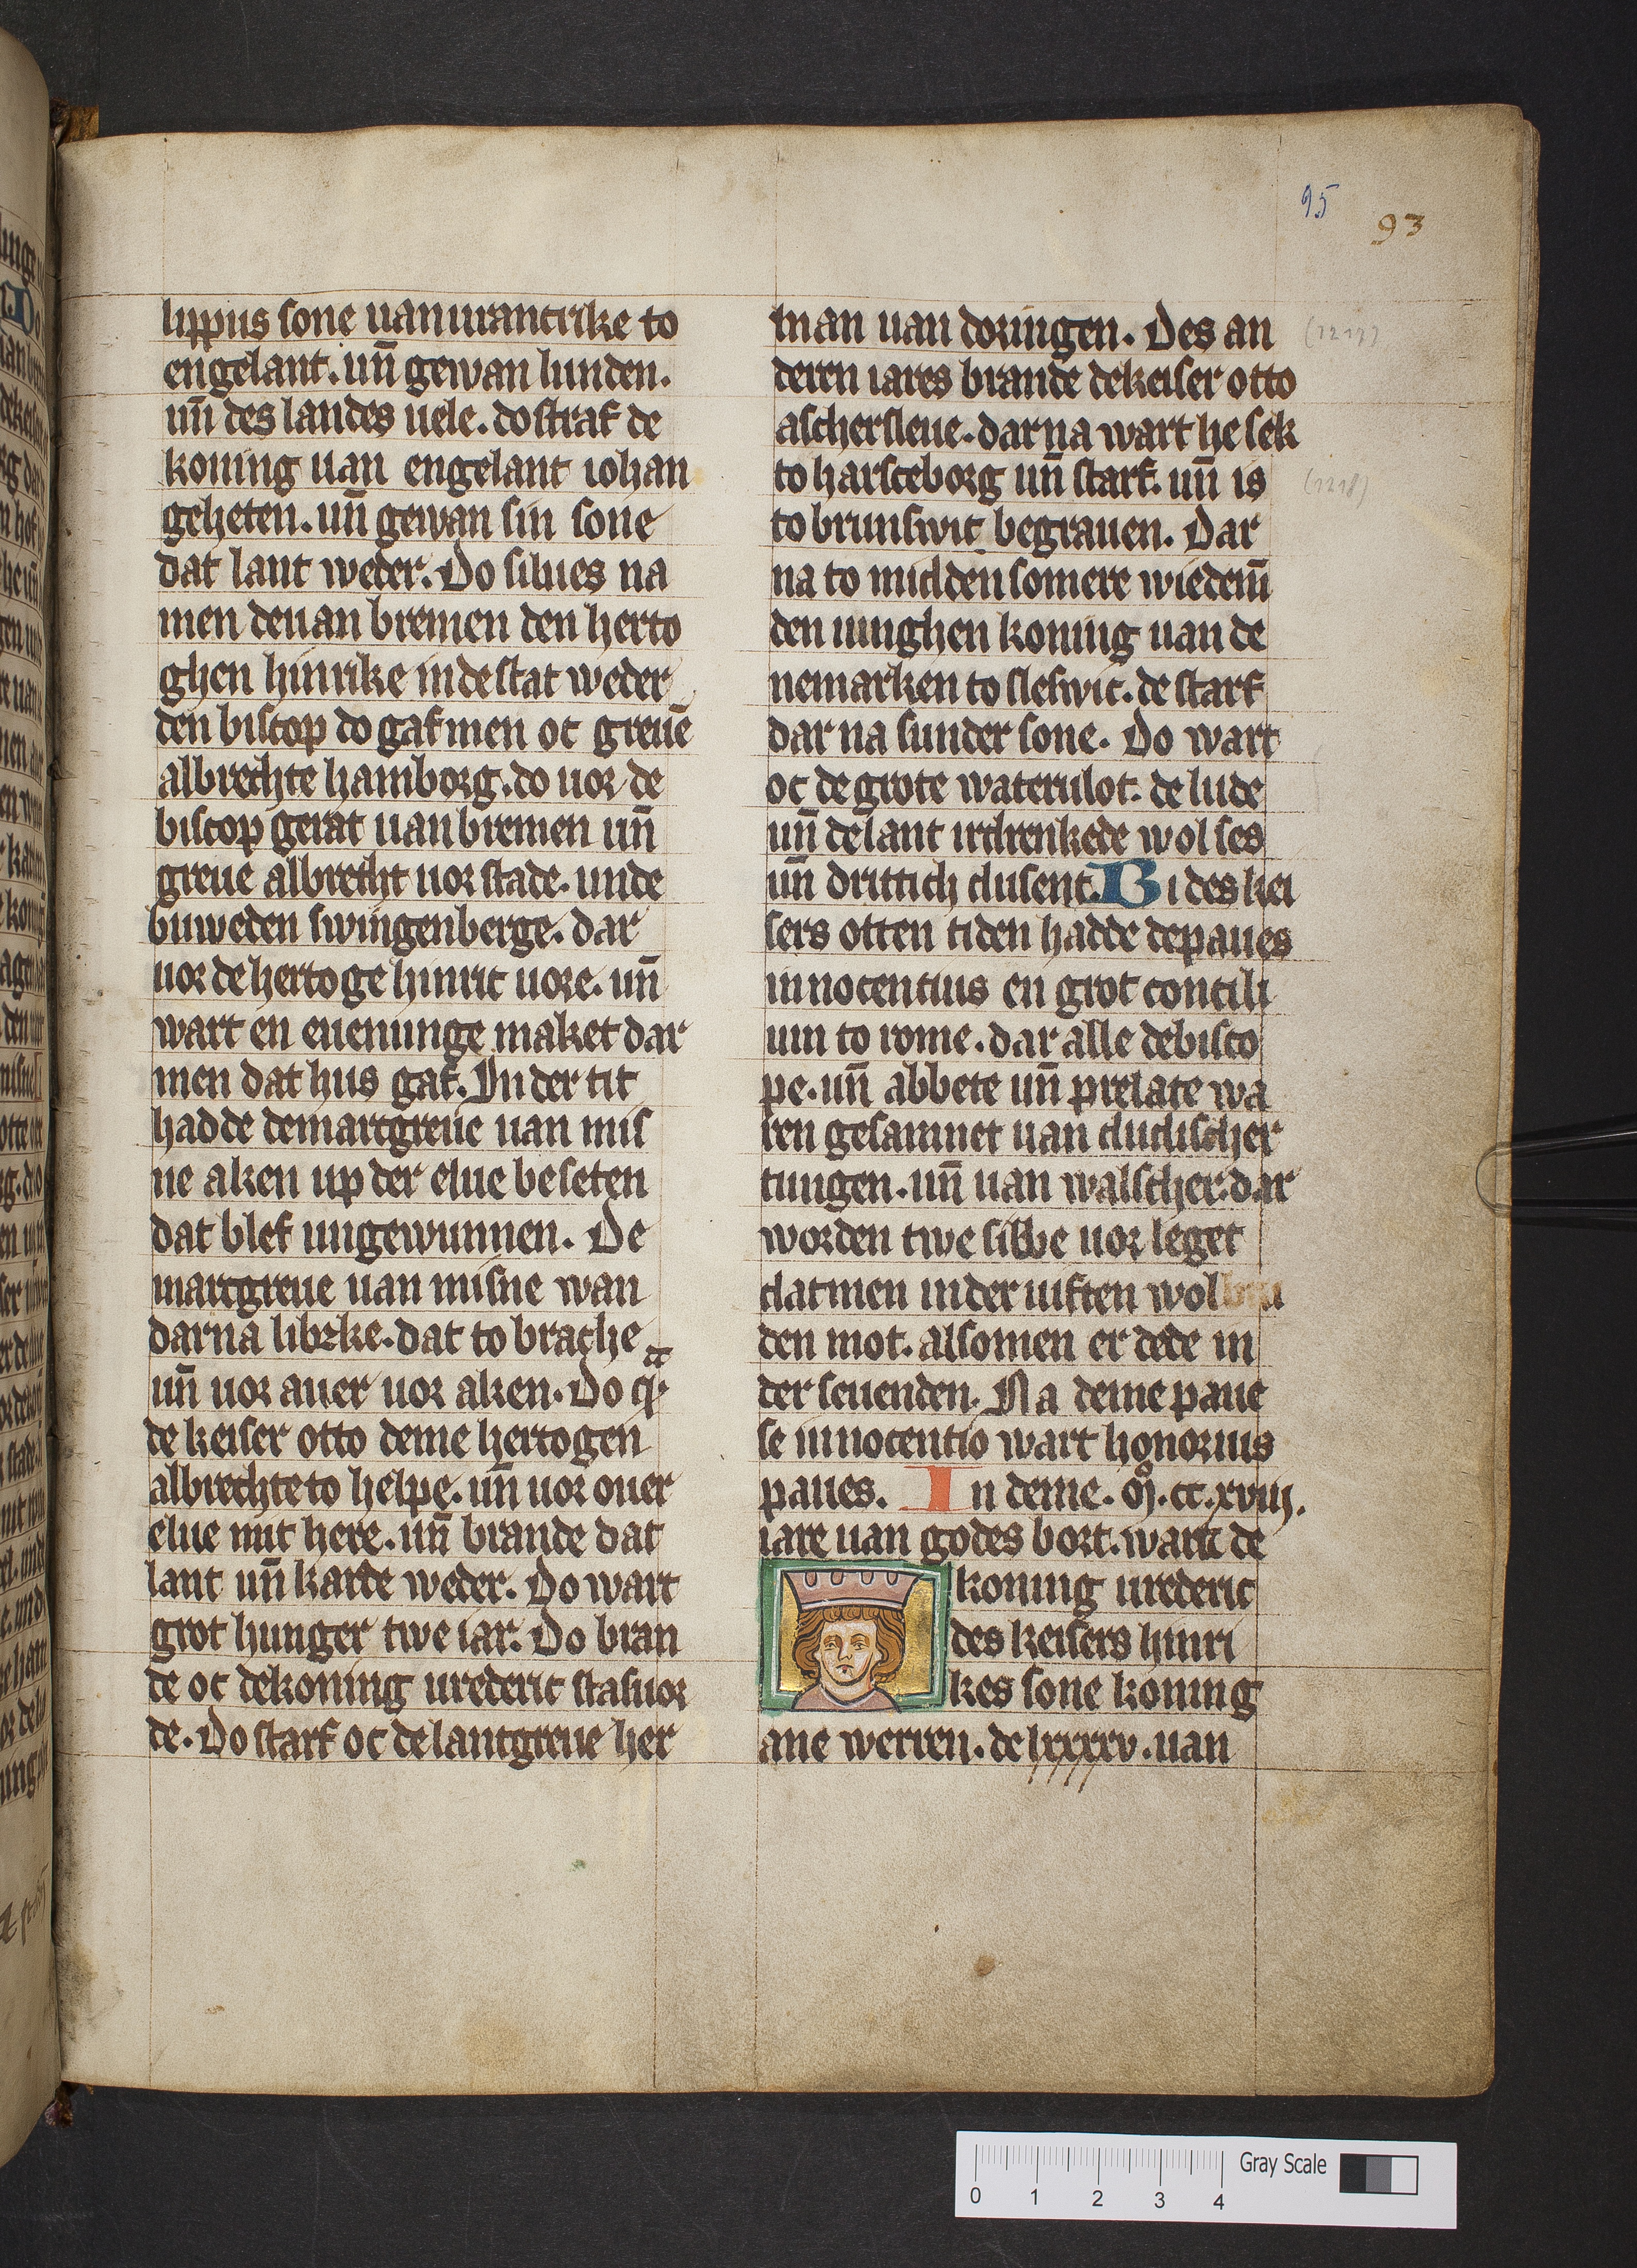 95
93
lippus sone uan urancrike to
engelant. uñ gewan lunden.
uñ des landes uele. do straf de
koning uan engelant iohan
geheten. uñ gewan sin sone
dat lant weder. Do silues na
men de uan bremen den herto
ghen hinrike in de stat weder
den biscop do gaf men oc greuē
albrechte hamborg. do uor de
biscop gerat uan bremen uñ
greue albrecht uor stade. unde
buweden swingenberge. dar
uor de hertoge hinric uore. uñ
wart en euenunge maket dar
men dat hus gaf. In der tit
hadde de marcgreue uan mis
ne aken up der elue beseten
dat blef ungewunnen. De
marcgreue uan misne wan
darna libzke. dat to brache
uñ uor auer uor aken. Do q
de keiser otto deme hertogen
albrechte to helpe. uñ uor ouer
elue mit here. uñ brande dat
lant uñ karde weder. Do wart
grot hunger twe iar. Do bran
de oc de koning urederic stasuor
de. Do starf oc de lantgreue her
man uan doringen. Des an
deren iares brande de keiser otto
aschersleue. dar na wart he sek
to harsceborg uñ starf. uñ is
to brunswic begrauen. Dar
na to midden somere wiedem̄
den iunghen koning uan de
nemarken to sleswic. de starf
dar na sunder sone. Do wart
oc de grote waterulot. de lude
uñ de lant irdrenkede wol ses
uñ drittich dusent. Bi des kei
sers otten tiden hadde de paues
innocentius en grot concili
um to rome. dar alle de bisco
pe. uñ abbete uñ prelate wa
ren gesamnet uan dudischer
tungen. uñ uan walscher. dar
worden twe sibbe uor leget
dat men in der uiften wol
den mot. also men er dede in
der seuenden. Na deme paue
se innocentio wart honorius
paues. In deme. M̊. cc. xviij.
iare uan godes bort. wart de
koning urederic
des keisers hinri
kes sone koning
ane werren. de lxxxxv. uan
(1217)
(1218)
0 1 2 3 4
Gray Scale